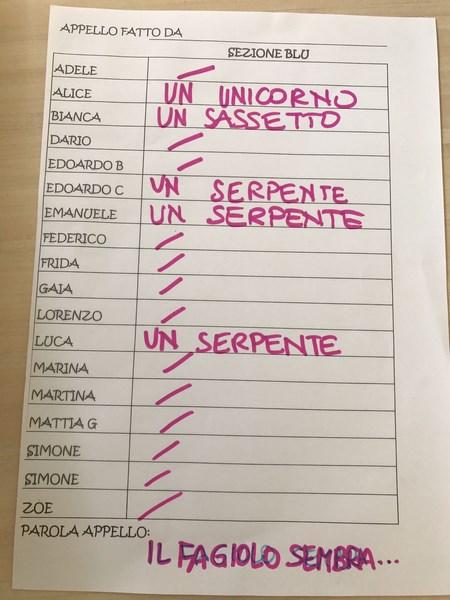 APPELLO FATTO DA
SEZIONE BLU
ADELE
ALICE UN UNICORNO
BIANCA UN SASSETTO
DARIO
EDOARDO B
EDOARDO C UN SERPENTE
EMANUELE UN SERPENTE
FEDERICO
FRIDA
GAIA
LORENZO
LUCA UN SERPENTE
MARINA
MARTINA
MATTIA G
SIMONE
SIMONE
ZOE
PAROLA APPELLO:
IL FAGIOLO SEMBRA...